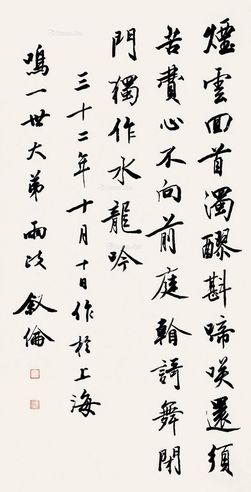 煙雲回首濁醪斟啼咲還須
苦費心不向前庭謌舞閉
門獨作水龍吟
三十二年十月十日作於上海
鳴一世大弟兩政 敘倫